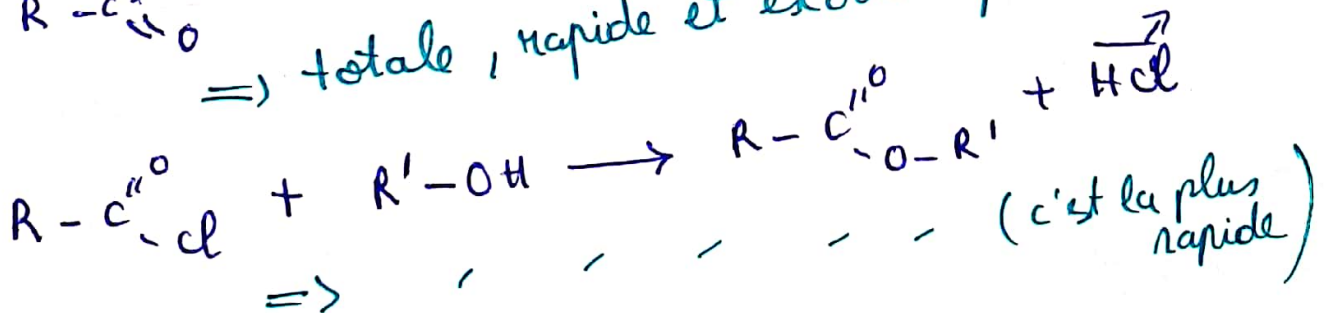 R - C = O
=> totale, rapide et
R - C = O - Cl + R' - OH → R - C = O - O - R' + HCl
=> (c'est la plus rapide)